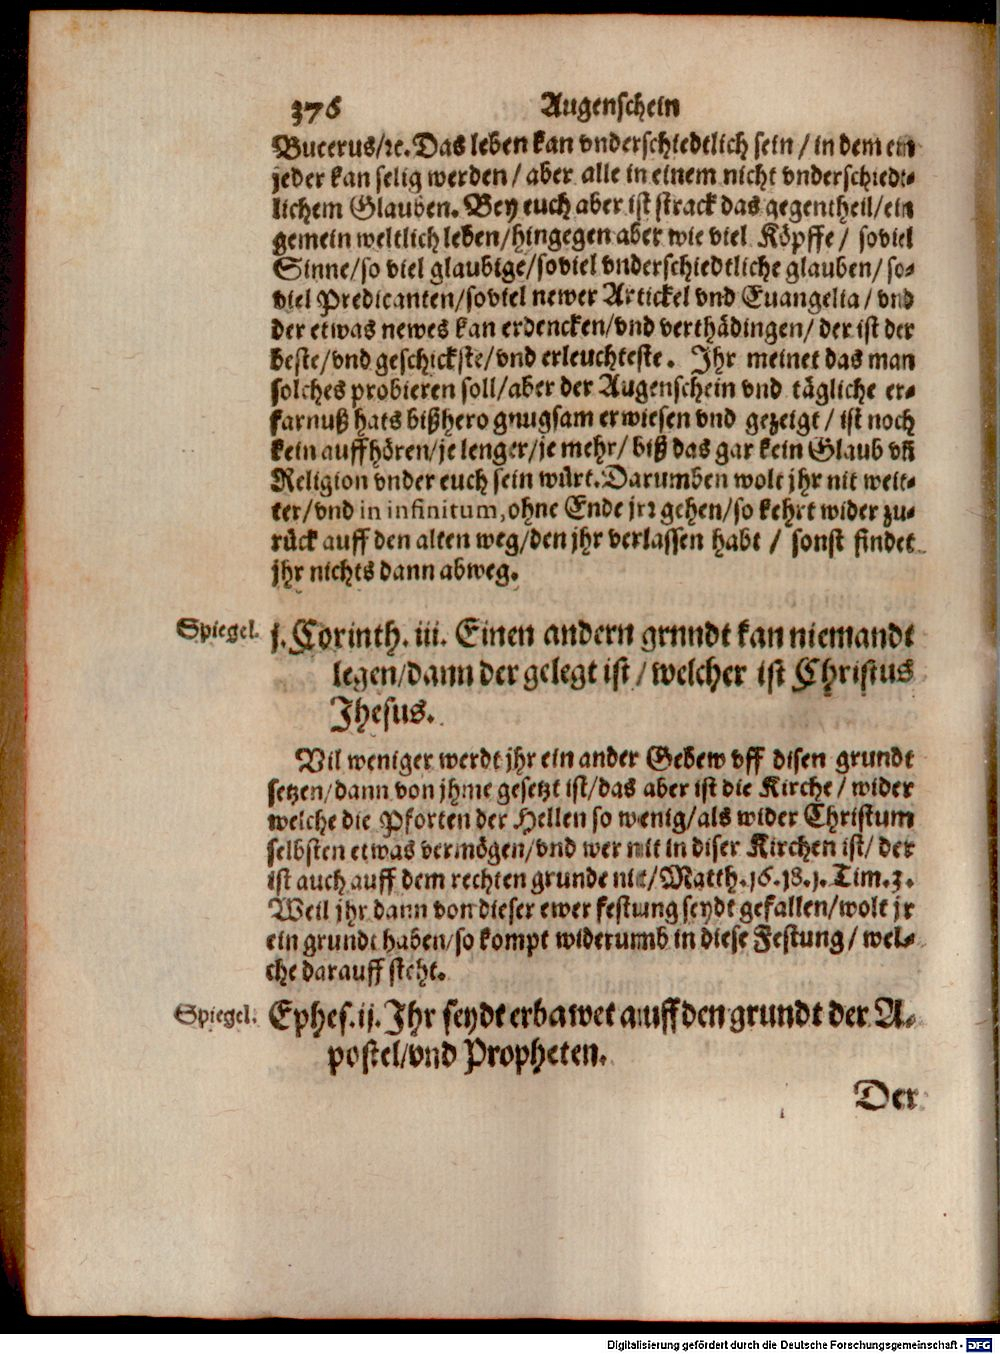 376 Augenschein
Bucerus/ꝛc. Das leben kan vnderschiedtlich sein / in dem ein
jeder kan selig werden / aber alle in einem nicht vnderschiedt-
lichem Glauben. Bey euch aber ist strack das gegentheil/ein
gemein weltlich leben/hingegen aber wie viel Köpffe / soviel
Sinne/so viel glaubige/soviel vnderschiedtliche glauben/ so-
viel Predicanten/soviel newer Artickel vnd Euangelia / vnd
der etwas newes kan erdencken/vnd verthädingen/ der ist der
beste/vnd geschickste/vnd erleuchteste. Ihr meinet das man
solches probieren soll/aber der Augenschein vnd tägliche er-
farnuß hats bißhero gnugsam erwiesen vnd gezeigt / ist noch
kein auffhören/je lenger/je mehr/ biß das gar kein Glaub vñ
Religion vnder euch sein würt. Darumben wolt jhr nit weit-
ter/vnd in infinitum, ohne Ende jrꝛ gehen/so kehrt wider zu-
rück auff den alten weg/den jhr verlassen habt / sonst findet
jhr nichts dann abweg.
Spiegel. j. Corinth. iii. Einen andern grundt kan niemandt
legen/dann der gelegt ist / welcher ist Christus
Jhesus.
Vil weniger werdt jhr ein ander Gebew vff disen grundt
setzen/dann von jhme gesetzt ist/das aber ist die Kirche / wider
welche die Pforten der Hellen so wenig/als wider Christum
selbsten etwas vermögen/vnd wer nit in diser Kirchen ist/ der
ist auch auff dem rechten grunde nit/Matth.16.18.1. Tim.3.
Weil jhr dann von dieser ewer festung seydt gefallen/wolt jr
ein grundt haben/so kompt widerumb in diese Festung / wel-
che darauff steht.
Spiegel. Ephes. ij. Ihr seydt erbawet auff den grundt der A-
postel/vnd Propheten.
Der
Digitalisierung gefördert durch die Deutsche Forschungsgemeinschaft - DFG